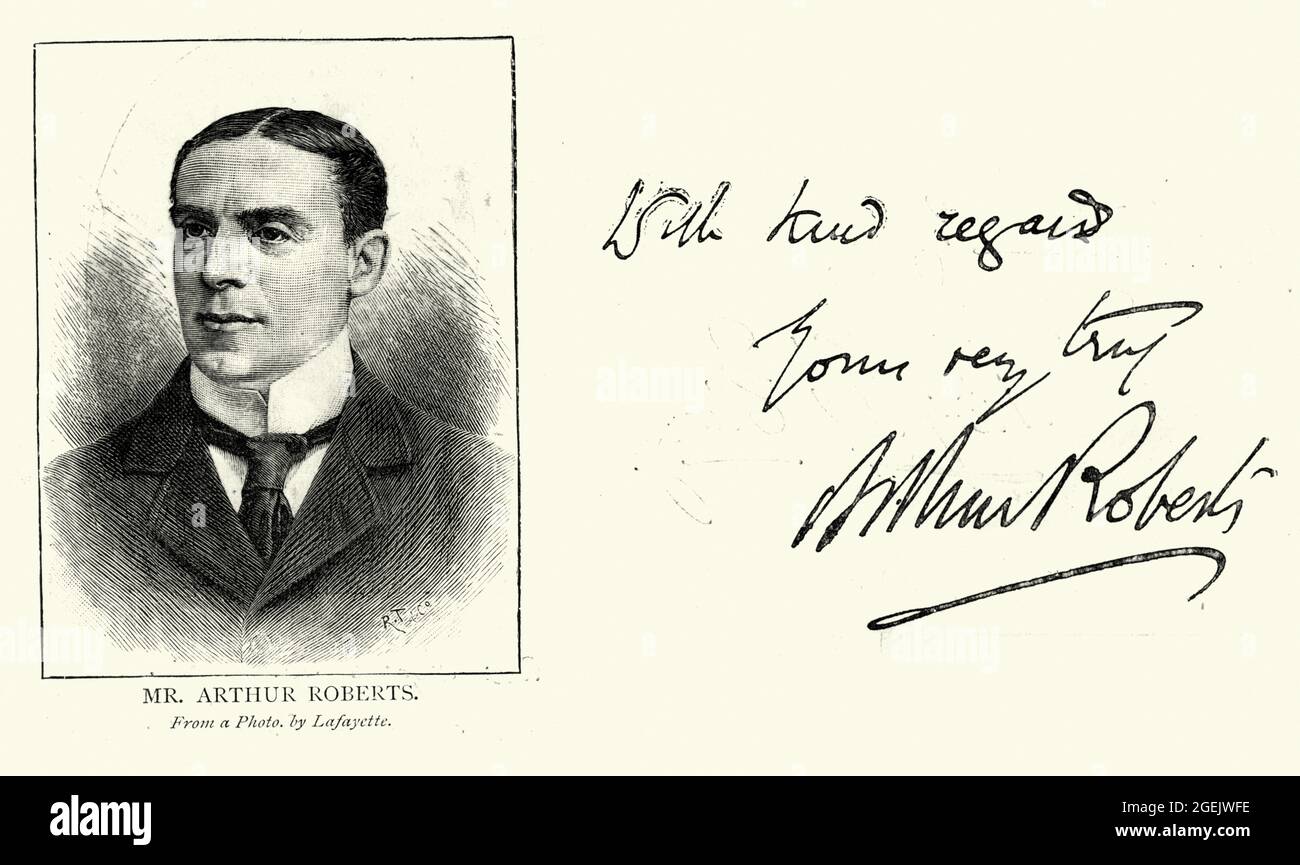 With kind regard
Yours very truly
Arthur Roberts
R.T. & Co
MR. ARTHUR ROBERTS.
From a Photo. by Lafayette.
alamy
Image ID: 2GEJWFE
www.alamy.com